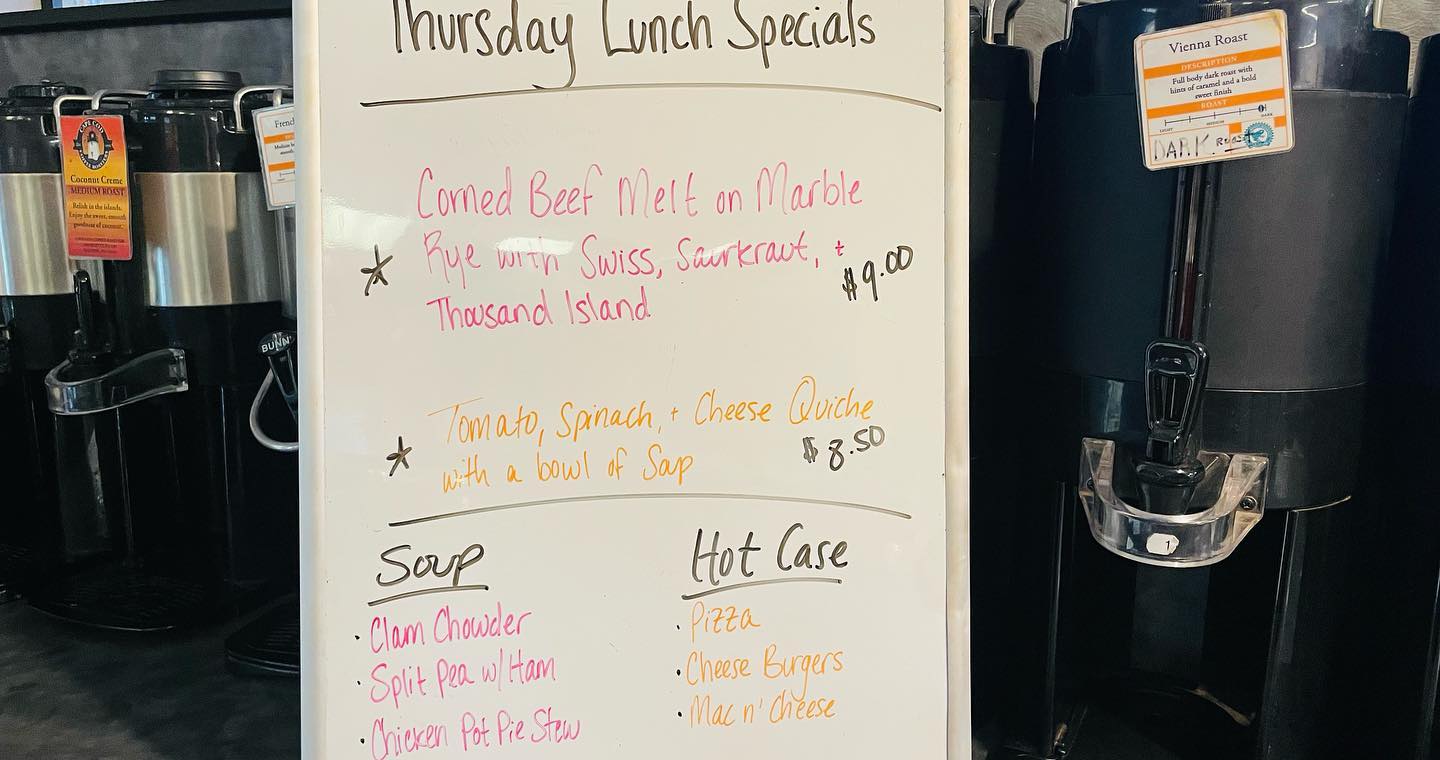 Thursday Lunch Specials
Corned Beef Melt on Marble
Rye with Swiss, Saurkraut, +
Thousand Island
$9.00
Tomato, Spinach, + Cheese Quiche
with a bowl of Soup
$8.50
Soup
· Clam Chowder
· Split Pea w/ Ham
· Chicken Pot Pie Stew
Hot Case
· Pizza
· Cheese Burgers
· Mac n' Cheese
CAPE COD
Coconut Creme
MEDIUM ROAST
Relish in the islands.
Enjoy the sweet, smooth
goodness of coconut.
French
BUNN
Vienna Roast
DESCRIPTION
Full body dark roast with
hints of caramel and a bold
sweet finish
ROAST
LIGHT MEDIUM DARK
DARK Roast
1